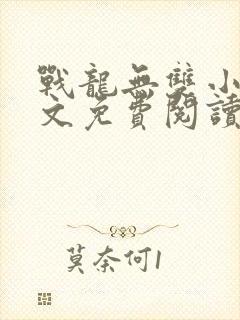 戰龍無雙小
文免費閱讀
莫奈何1